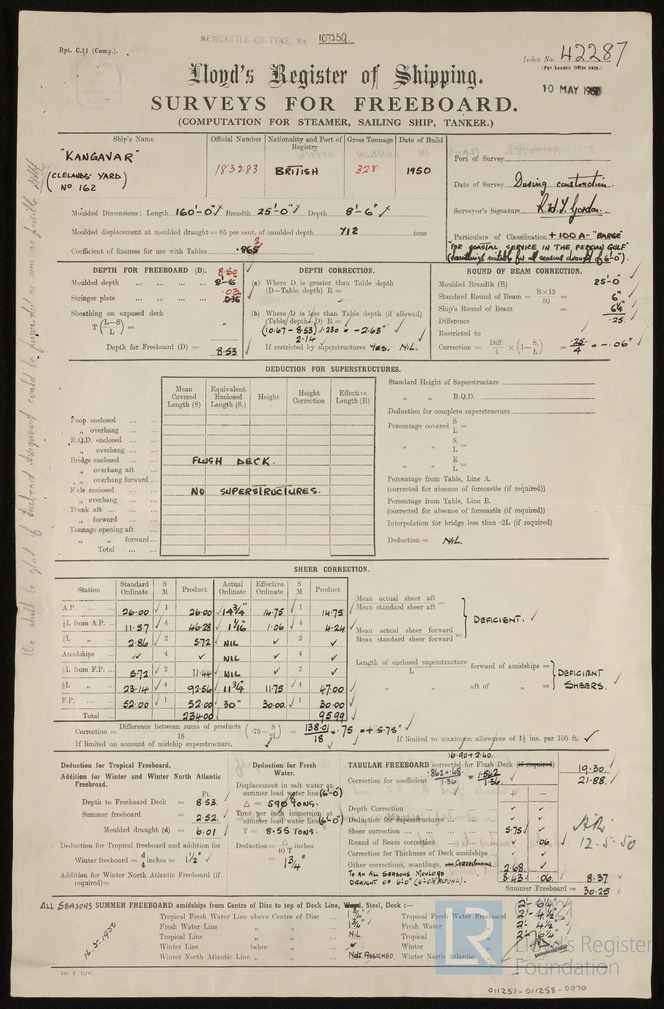 NEWCASTLE-ON-TYNE. No. 107259
Rpt. C.11 (Comp.).
Index No. 42287
(For London Office only.)
10 MAY 1950
Lloyd's Register of Shipping.
SURVEYS FOR FREEBOARD.
(COMPUTATION FOR STEAMER, SAILING SHIP, TANKER.)
Ship's Name Official Number Nationality and Port of Registry Gross Tonnage Date of Build
"KANGAVAR" 183283 BRITISH 328 1950
(CLELANDS' YARD)
No 162
Port of Survey
Date of Survey During construction
Surveyor's Signature
Particulars of Classification +100A- "BARGE"
"FOR COASTAL SERVICE IN THE PERSIAN GULF"
Moulded Dimensions: Length 160'-0" Breadth 25'-0" Depth 8'-6"
Moulded displacement at moulded draught = 85 per cent. of moulded depth 712 tons
Coefficient of fineness for use with Tables
DEPTH FOR FREEBOARD (D).
Moulded depth 8'-6"
Stringer plate
Sheathing on exposed deck
T (L-S / L) = -
Depth for Freeboard (D) = 8.53
DEPTH CORRECTION.
(a) Where D is greater than Table depth
(D-Table depth) R =
(b) Where D is less than Table depth (if allowed)
(Table depth-D) R =
(10.67 - 8.53) 1.230 = -2.63"
2.14
If restricted by superstructures Yes. NIL.
ROUND OF BEAM CORRECTION.
Moulded Breadth (B) 25'-0"
Standard Round of Beam = B×12 / 50 = 6"
Ship's Round of Beam = 6¼"
Difference .25
Restricted to
Correction = Diff / 4 × (1 - S₁ / L) = .25 / 4 = -.06"
DEDUCTION FOR SUPERSTRUCTURES.
Mean Covered Length (S) Equivalent Enclosed Length (S₁) Height Height Correction Effective Length (E)
Poop enclosed
" overhang
R.Q.D. enclosed
" overhang
Bridge enclosed
" overhang aft
" overhang forward
F'cle enclosed
" overhang
Trunk aft
" forward
Tonnage opening aft
" " forward
Total
FLUSH DECK.
NO SUPERSTRUCTURES.
Standard Height of Superstructure
" " R.Q.D.
Deduction for complete superstructure
Percentage covered S / L =
" " S₁ / L =
" " E / L =
Percentage from Table, Line A.
(corrected for absence of forecastle (if required))
Percentage from Table, Line B.
(corrected for absence of forecastle (if required))
Interpolation for bridge less than ·2L (if required)
Deduction = NIL.
SHEER CORRECTION.
Station Standard Ordinate S M Product Actual Ordinate Effective Ordinate S M Product
A.P. 26.00 1 26.00 14¾" 14.75 1 14.75
⅙L from A.P. 11.57 4 46.28 1 1/16" 1.06 4 4.24
⅓L " 2.86 2 5.72 NIL 2
Amidships 4 NIL 4
⅓L from F.P. 5.72 2 11.44 NIL 2
⅙L " 23.14 4 92.56 11¾" 11.75 4 47.00
F.P. 52.00 1 52.00 30" 30.00 1 30.00
Total 234.00 95.99
Mean actual sheer aft
Mean standard sheer aft =
Mean actual sheer forward
Mean standard sheer forward =
DEFICIENT.
Length of enclosed superstructure / L forward of amidships =
" " aft of " =
DEFICIENT SHEERS.
Correction = Difference between sums of products / 18 (·75 - S / 2L) = 138.01 / 18 × .75 = +5.78"
If limited on account of midship superstructure.
If limited to maximum allowance of 1½ ins. per 100 ft.
Deduction for Tropical Freeboard.
Addition for Winter and Winter North Atlantic Freeboard.
Ft.
Depth to Freeboard Deck = 8.53
Summer freeboard = 2.52
Moulded draught (d) = 6.01
Deduction for Tropical freeboard and addition for
Winter freeboard = d / 4 inches = 1½"
Addition for Winter North Atlantic Freeboard (if required) =
Deduction for Fresh Water.
Displacement in salt water at summer load water line (6'-0")
Δ = 590 TONS.
Tons per inch immersion at summer load water line (6'-0")
T = 8.55 TONS.
Deduction = Δ / 40 T inches
= 1¾"
TABULAR FREEBOARD corrected for Flush Deck (if required)
16.90 + 2.40 19.30
Correction for coefficient .862 + .68 / 1.36 = 1.562 / 1.36 21.88
+ -
Depth Correction
Deduction for superstructures
Sheer correction 5.75
Round of Beam correction .06
Correction for Thickness of Deck amidships
Other corrections, scantlings,
TO AN ALL SEASONS MOULDED DRAUGHT OF 6'-0" 2.68
8.43 .06 8.37
Summer Freeboard = 30.25
12-5-50
ALL SEASONS SUMMER FREEBOARD amidships from Centre of Disc to top of Deck Line, Wood, Steel, Deck :—
Tropical Fresh Water Line above Centre of Disc 1¾"
Fresh Water Line " " 1¾"
Tropical Line " " NIL
Winter Line below "
Winter North Atlantic Line " " NOT ASSIGNED.
Tropical Fresh Water Freeboard
Fresh Water "
Tropical "
Winter "
Winter North Atlantic "
2'-6¼"
2'-4½"
2'-4½"
2'-6¼"
16.5.1950
LR
Lloyd's Register
Foundation
011251-011258-0070